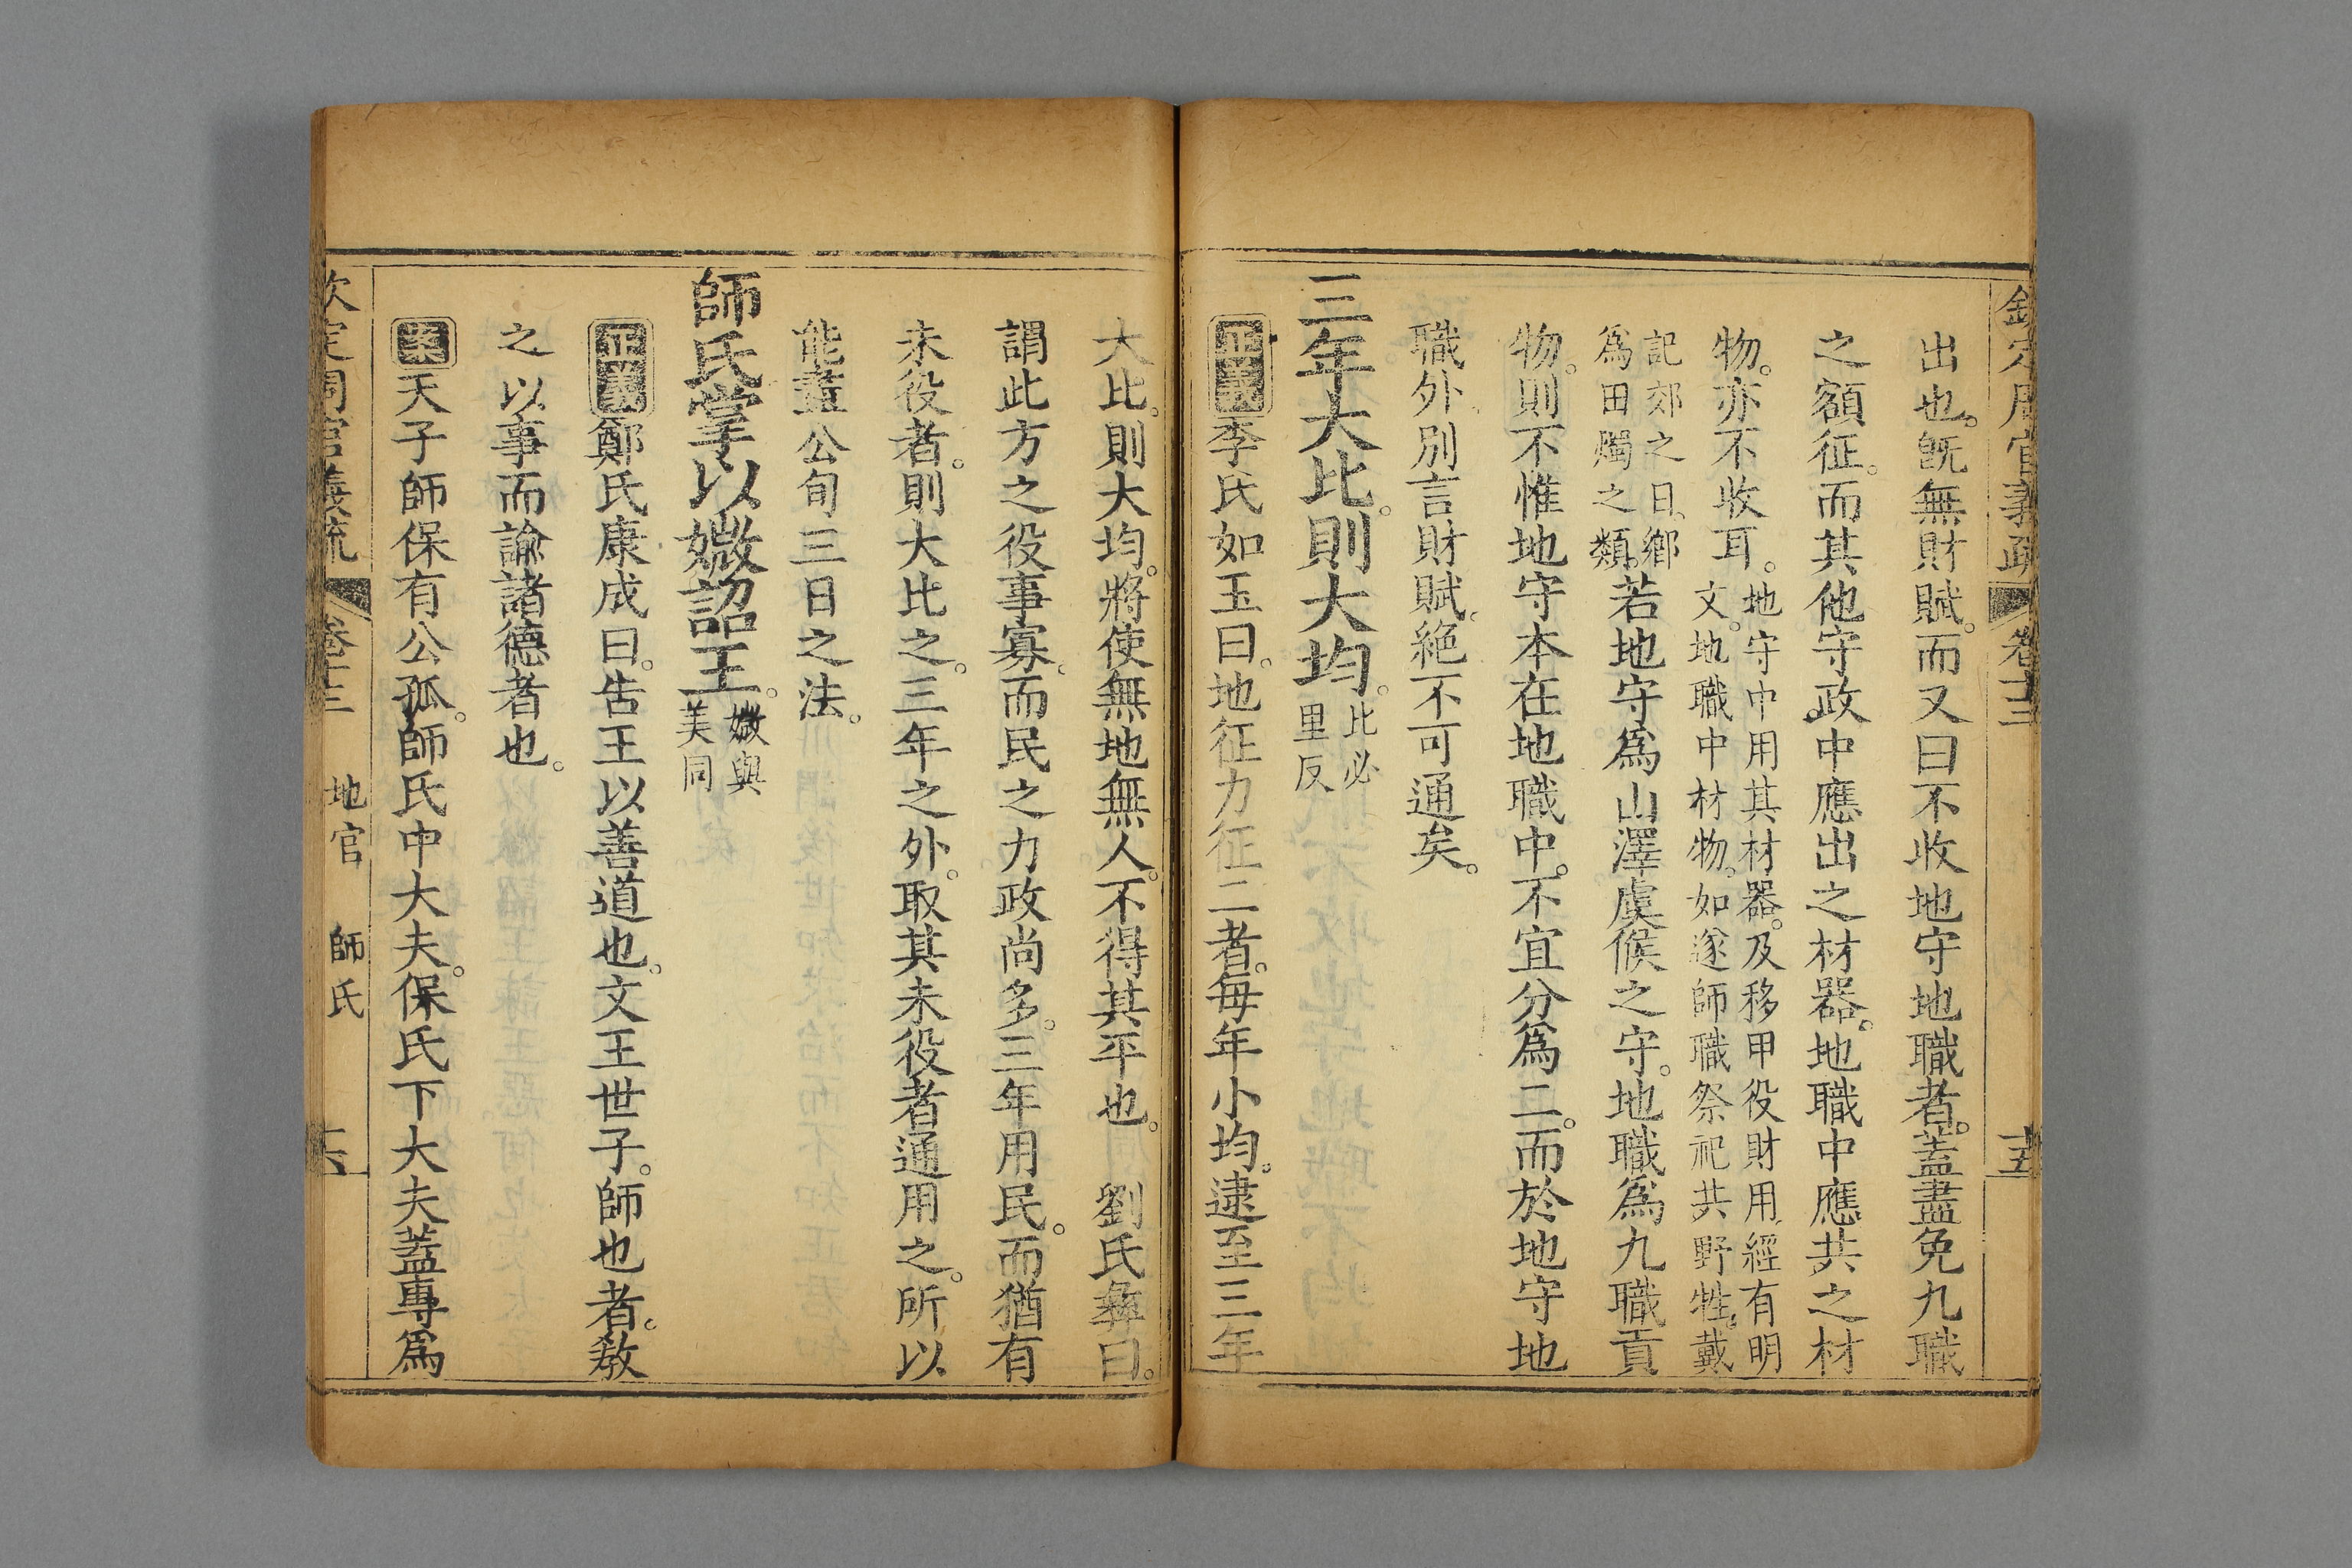 欽定周官義疏 卷十三 十五
出也。旣無財賦。而又曰不收地守地職者。蓋盡免九職
之額征。而其他守政中應出之材器。地職中應共之材
物。亦不收耳。地守中用其材器。及移甲役財用、經有明
文。地職中材物。如遂師職祭祀共野牲。戴
記郊之日。鄉
爲田燭之類。若地守爲山澤虞候之守。地職爲九職貢
物。則不惟地守本在地職中。不宜分爲二。而於地守地
職外。別言財賦。絕不可通矣。
三年大比。則大均。比必
里反
正義李氏如玉曰。地征力征二者。每年小均。逮至三年
大比。則大均。將使無地無人。不得其平也。 劉氏彝曰。
謂此方之役事寡、而民之力政尚多。三年用民。而猶有
未役者。則大比之。三年之外。取其未役者通用之。所以
能盡公旬三日之法。
師氏掌以媺詔王。媺與
美同
正義鄭氏康成曰。告王以善道也。文王世子。師也者。敎
之以事而諭諸德者也。
案天子師保有公孤。師氏中大夫。保氏下大夫蓋專爲
欽定周官義疏 卷十三 地官 師氏 十六